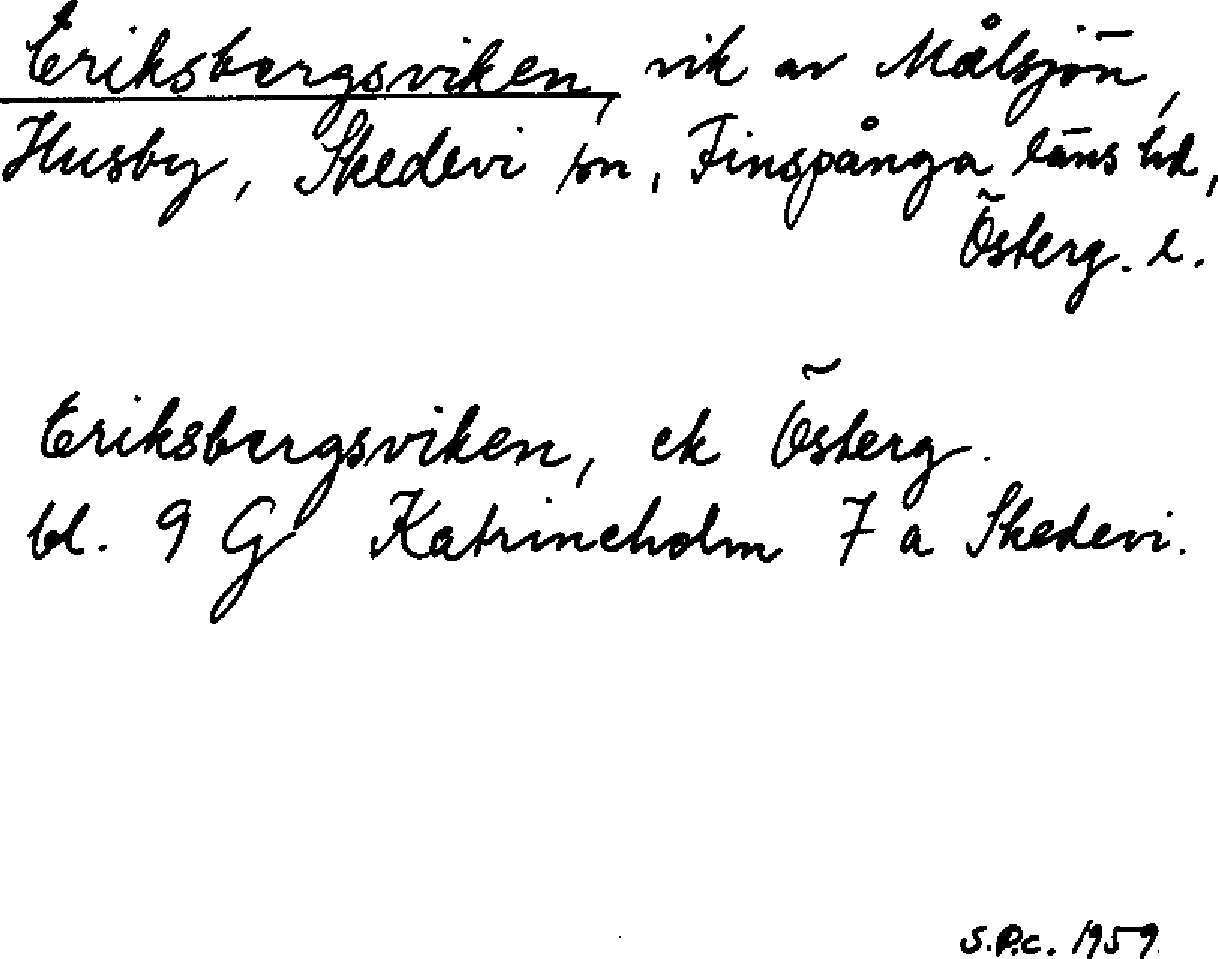 Eriksbergsviken, vik av Målsjön,
Husby, Skedevi sn, Finspånga läns hd,
Österg. l.
Eriksbergsviken, ek Österg.
bl. 9 G Katrineholm 7 a Skedevi.
S.P.c. 1959